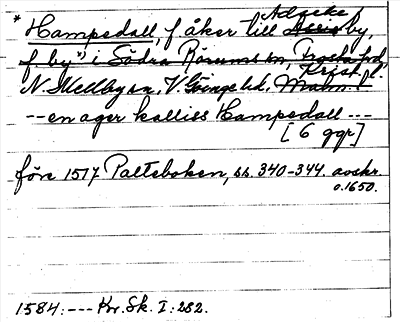 Adseke
* Hampedall, f åker till by,
f. by" i Södra Rörums sn, Frosta hd,
Krist. l.
N. Mellby sn, V. Göinge hd, Malm. l
-- en ager kalliss Hampedall ---
[6 ggr]
före 1517 Palteboken, ss. 340-344. avskr.
o. 1650.
1584: --- Kr. Sk. I: 282.